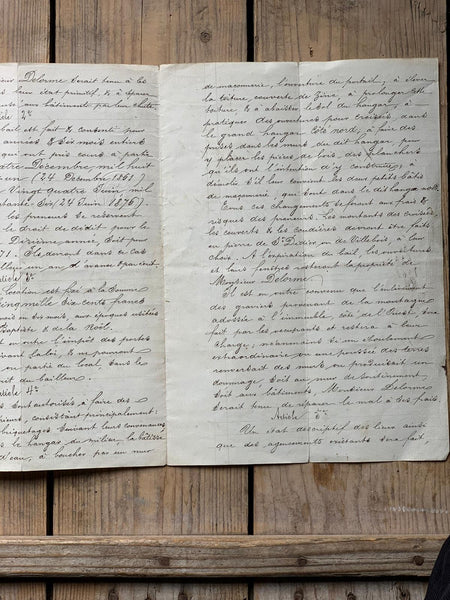 Delorme serait tenu à ses
leur état primitif, & à épauler
aux bâtiments par leur chute.
2e
bail est fait & consenti pour
années & six mois entiers
qui ont pris cours à partir
quatre Décembre mil huit
un (24 Décembre 1861)
Vingt quatre Juin mil
Six, (24 Juin 1876).
les preneurs se réservent
le droit de dédit pour la
Dixième année, soit pour
71. Ils devront dans ce cas
un an d'avance & par écrit.
location est fait à la somme
cinq mille six cents francs
en six mois, aux époques usitées
Baptiste & de la Noël.
en outre l'impôt des portes
& ne pourront
ou partie du local sans le
du bailleur.
4e
sont autorisés à faire des
consistant principalement:
briquetages suivant leurs convenances
le hangar du milieu, la bâtisse
d'eau, à boucher par un mur
de maçonnerie, l'ouverture du portail, à élever
la toiture, couverte de zinc, à prolonger cette
toiture & à abaisser le sol du hangar, à
pratiquer des ouvertures pour croisées, dans
le grand hangar côté nord, à faire des
dans les murs du dit hangar pour
y placer les pièces de bois, des planchers
qu'ils ont l'intention d'y construire, à
démolir s'il leur convient les deux petits bâtis
de maçonnerie, qui sont dans le dit hangar nord.
Tous ces changements seront aux frais &
risques des preneurs. Les montants des croisées,
les couverts & les coudières devront être faits
en pierre de St Didier ou de Villebois, à leur
choix. A l'expiration du bail, les ouvertures
et leurs fenêtres resteront la propriété de
Monsieur Delorme.
Il est en outre convenu que l'enlèvement
des graviers provenant de la montagne
adossée à l'immeuble, côté de l'Ouest sera
fait par les occupants et restera à leur
charge, néanmoins si un éboulement
extraordinaire ou une poussée des terres
renversait des murs ou produisait un
dommage, soit au mur de soutènement
soit aux bâtiments, Monsieur Delorme
serait tenu de réparer le mal à ses frais.
Article 5e
Un état descriptif des lieux ainsi
que des agencements existants sera fait